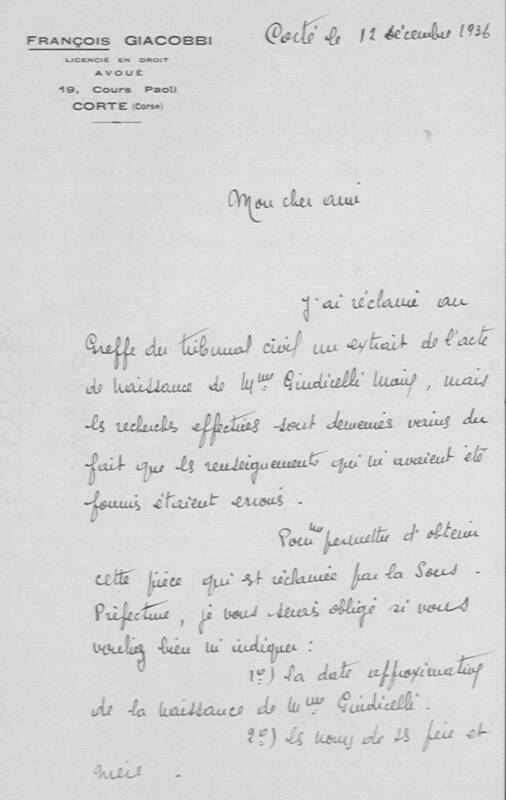 FRANÇOIS GIACOBBI
LICENCIÉ EN DROIT
AVOUÉ
19, Cours Paoli
CORTE (Corse)
Corté le 12 décembre 1936
Mon cher ami
J'ai réclamé au
Greffe du tribunal civil un extrait de l'acte
de naissance de Mme Giudicelli Marie, mais
les recherches effectuées sont demeurées vaines du
fait que les renseignements qui m'avaient été
fournis étaient erronés.
Pour me permettre d'obtenir
cette pièce qui est réclamée par la Sous-
Préfecture, je vous serais obligé si vous
vouliez bien m'indiquer :
1º) la date approximative
de la naissance de Mme Giudicelli.
2º) les noms de ses père et
mère.